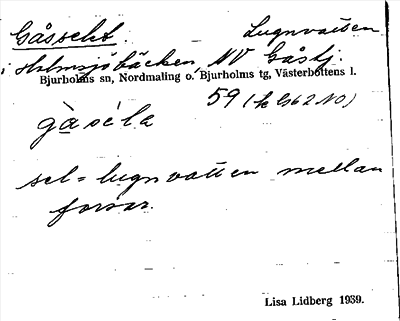 Gåsselet. Lugnvatten
i Holmsjöbäcken, NV Gåstj.
Bjurholms sn, Nordmaling o. Bjurholms tg, Västerbottens l.
59
gàséla
sel = lugnvatten mellan
forsar.
Lisa Lidberg 1939.